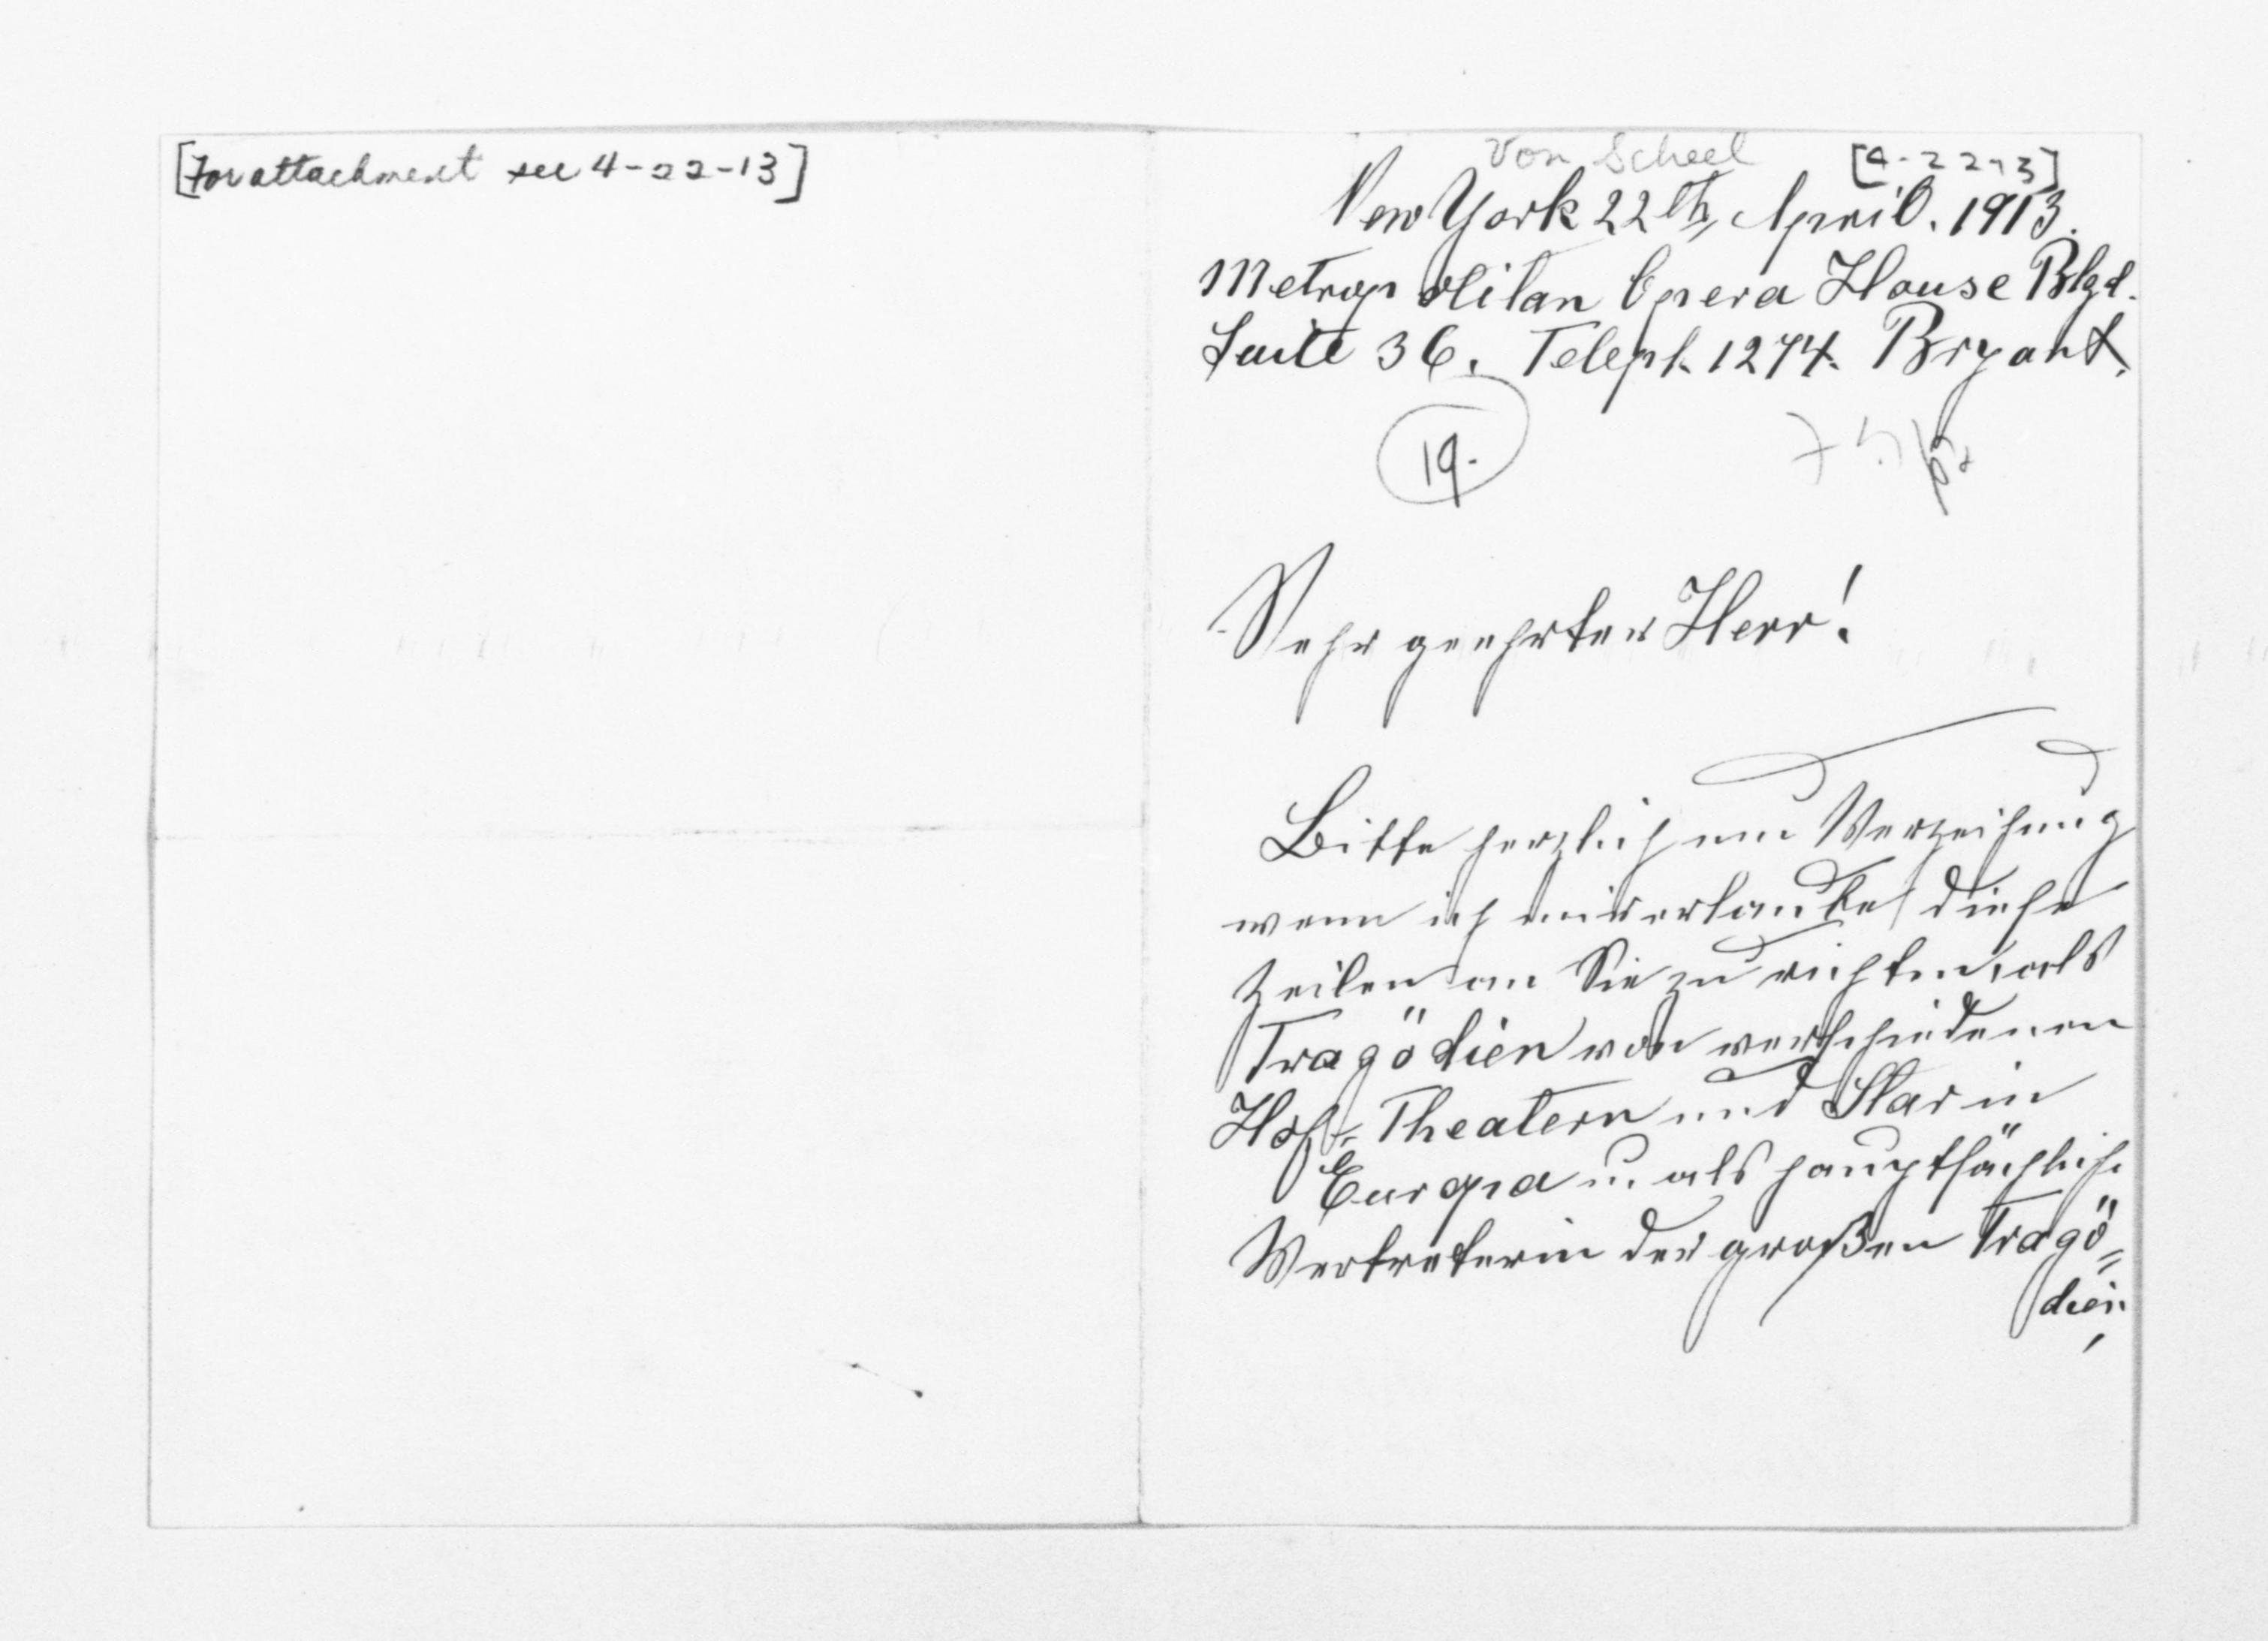 [For attachment see 4-22-13]
Von Scheel [4-22-13]
New York 22th, April. 1913.
Metropolitan Opera House Blgd.
Suite 36. Teleph. 1274. Bryant.
19.
Sehr geehrter Herr!
Bitte herzlich um Verzeihung
wenn ich mir erlaube diese
Zeilen an Sie zu richten, als
Tragödien von verschiedenen
Hof-Theatern und Star in
Europa u. als hauptsächliche
Vertreterin der großen Tragö=
dien